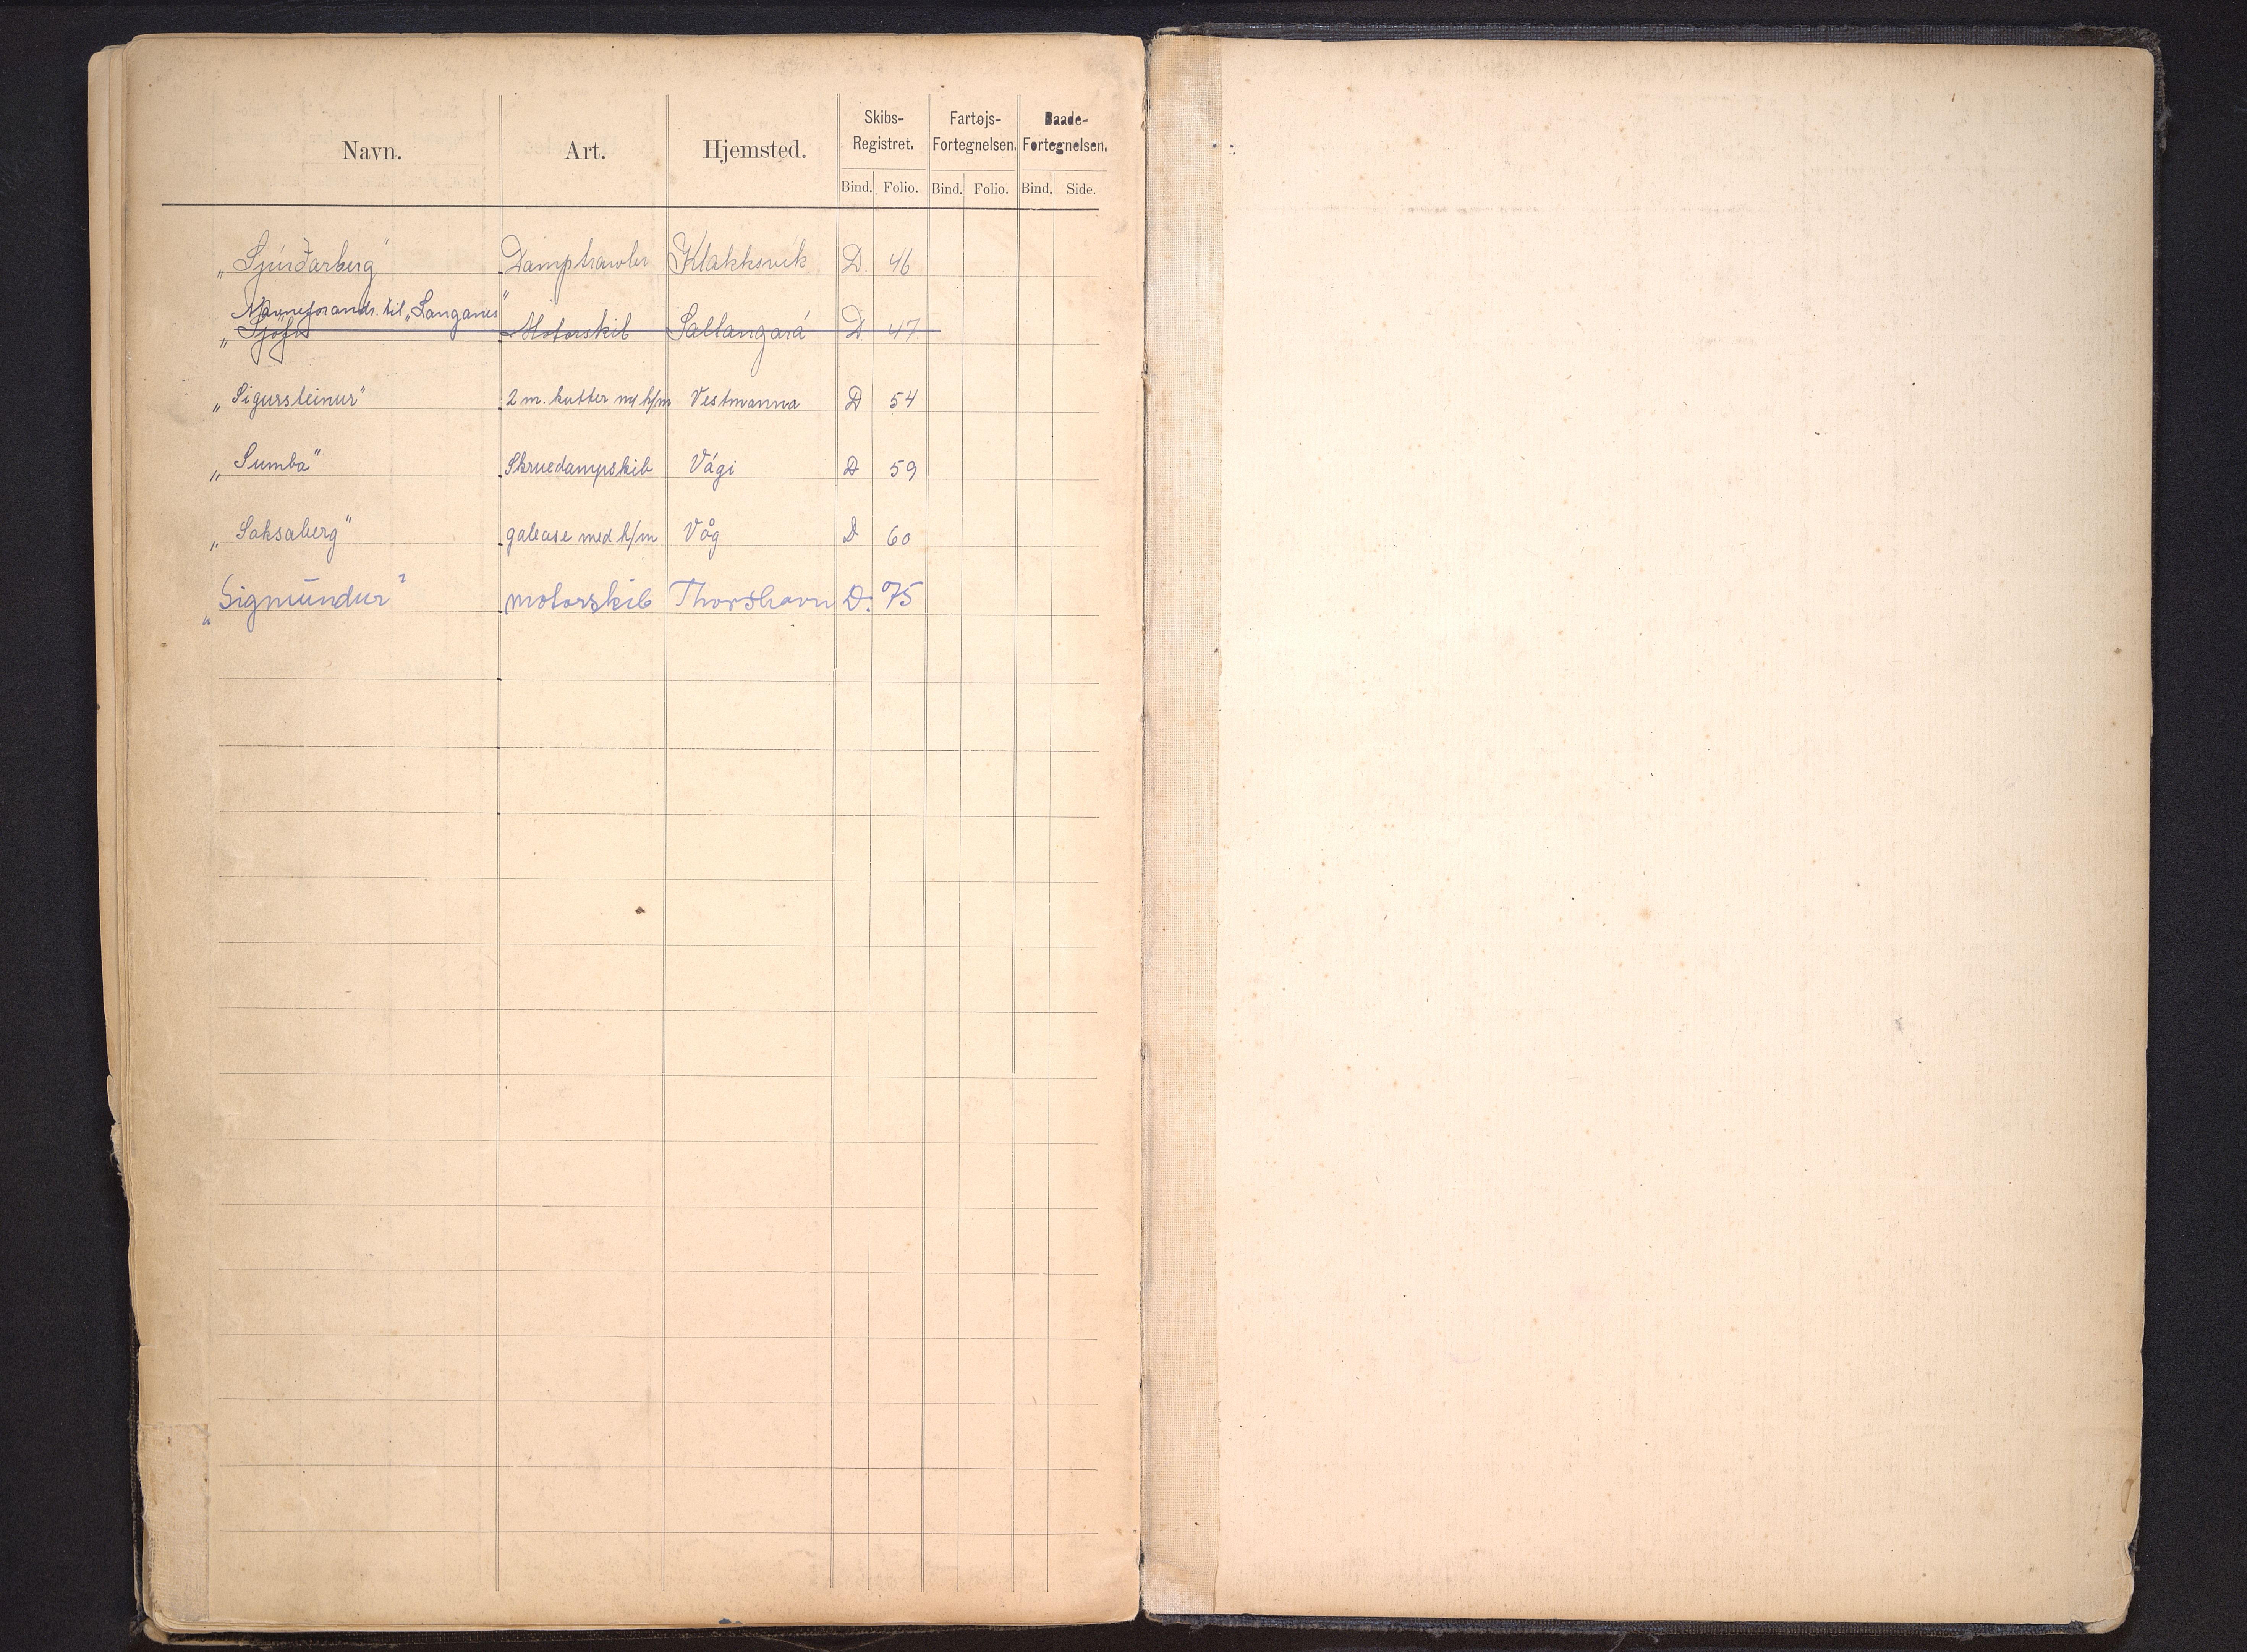 Navn. Art. Hjemsted. Skibs-Registret. Fartøjs-Fortegnelsen. Baade-Fortegnelsen.
Bind. Folio. Bind. Folio. Bind. Side.
„Sjúrðarberg" Damptrawler Klakksvík D. 46
Navneforandr. til „Langanes"
„Sjófn" Motorskib Saltangará D. 47.
„Sigursteinur" 2 m. kutter m/h/m Vestmanna D 54
„Sumba" Skruedampskib Vági D 59
„Saksaberg" galease med h/m Våg D 60
„Sigmundur" motorskib Thorshavn D. 75